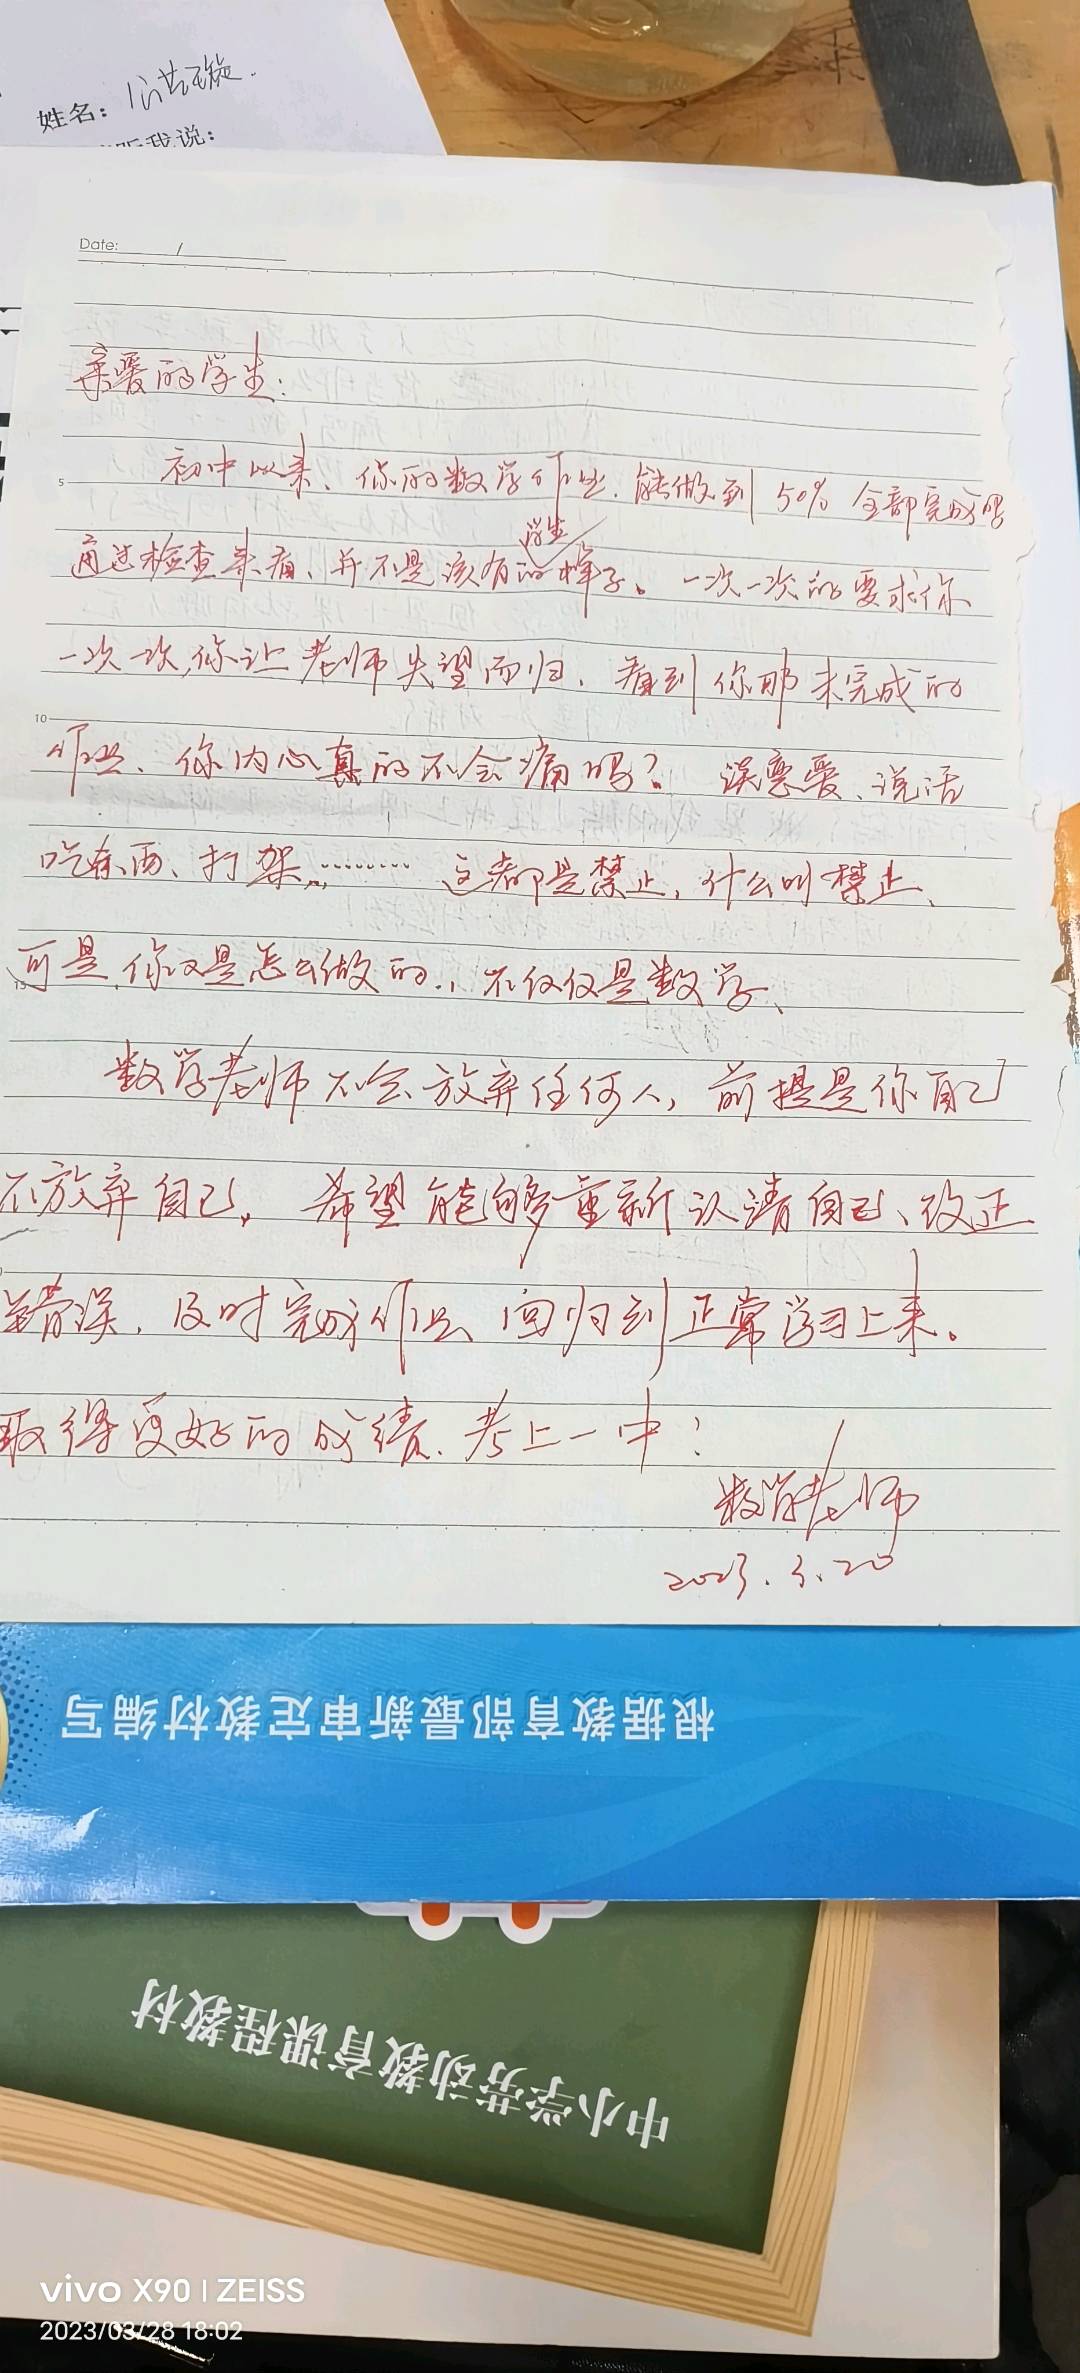 姓名：
听我说：
Date: /
亲爱的学生：
初中以来、你的数学作业、能做到 50% 全部完成吗
学生
通过检查来看、并不是该有的样子。一次一次的要求你
一次一次,你让老师失望而归、看到你那未完成的
作业、你内心真的不会痛吗？ 谈恋爱、说话
吃东西、打架……… 这都是禁止，什么叫禁止、
可是,你又是怎么做的.,不仅仅是数学、
数学老师不会放弃任何人，前提是你自己
不放弃自己，希望能够重新认清自己、改正
错误、及时完成作业 回归到正常学习上来。
取得更好的成绩、考上一中！
数学老师
2023.3.20
根据教育部最新审定教材编写
中小学劳动教育课程教材
vivo X90 | ZEISS
2023/03/28 18:02